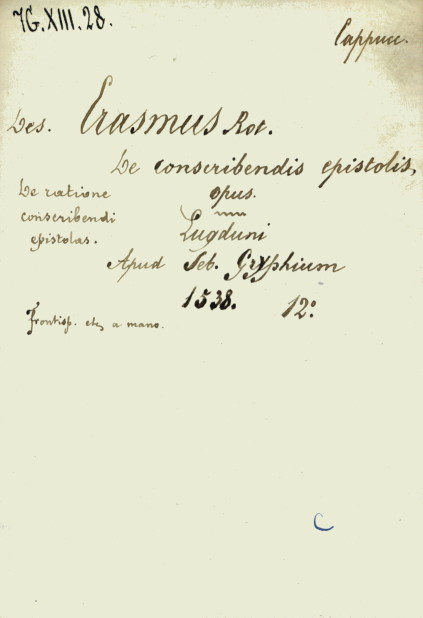 7G.XIII.28.
Cappucc.
Des. Erasmus Rot.
De conscribendis epistolis,
opus.
De ratione
conscribendi
epistolas.
Lugduni
Apud Seb. Gryphium
1538. 12°
Frontisp. etc a mano.
C